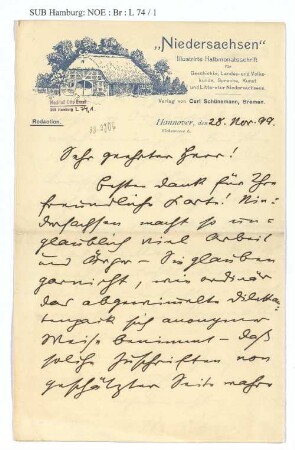 SUB Hamburg: NOE : Br : L 74 / 1
„Niedersachsen“
Illustrirte Halbmonatsschrift
für
Geschichte, Landes- und Volks-
kunde, Sprache, Kunst
und Litteratur Niedersachsens.
Verlag von Carl Schünemann, Bremen.
Redaction.
Hannover, den 28. Nov. 99.
Sehr geehrter Herr!
besten Dank für Ihre
freundliche Karte! Nie-
dersachsen macht so un-
glaublich viel Arbeit
und Ärger – Sie glauben
garnicht, wie ordinär
das
sich anonymer
Weise benimmt – daß
solche Zuschriften von
geschätzter Seite